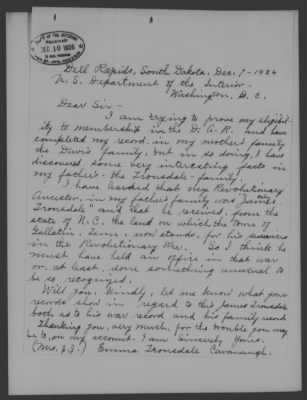 DEPT. OF THE INTERIOR
RECEIVED
DEC 10 1926
Dell Rapids, South Dakota, Dec. 7-1926
U. S. Department of the Interior-
Washington, D. C.
Dear Sir-
I am trying to prove my eligibil-
ity to membership in the D. A. R. and have
completed my record, in my mother's family
the Davis family, but in so doing, I have
discovered some very interesting facts in
my father's - the Trousdale - family.
I have learned that my Revolutionary
Ancestor, in my father's family was "James
Trousdale" and that he received, from the
state of N. C. the land on which the town of
Gallatin, Tenn., now stands, for his services
in the Revolutionary War. So I think he
must have held an office in that war
or, at least, done something unusual to
be so recognized.
Will you, kindly, let me know what your
records show in regard to this James Trousdale
both as to his war record and his family record
Thanking you, very much, for the trouble you may
be to, on my account. I am Sincerely Yours.
(Mrs. J. J.) Emma Trousdale Cavanaugh.